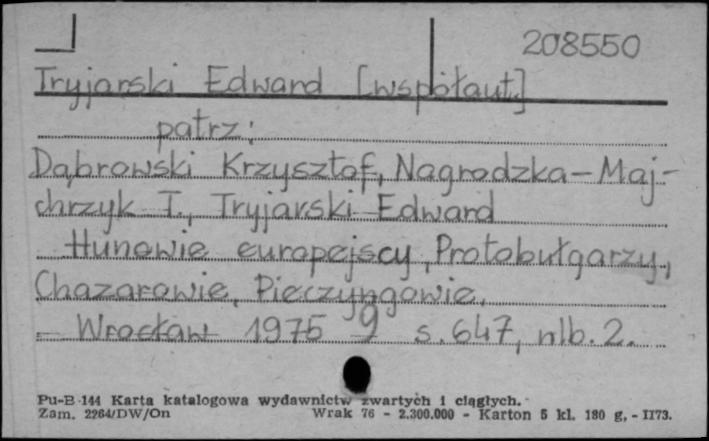 208550
Tryjarski Edward [współaut.]
patrz:
Dąbrowski Krzysztof, Nagrodzka-Maj-
chrzyk T., Tryjarski Edward
Hunowie europejscy, Protobułgarzy,
Chazarowie, Pieczyngowie.
- Wrocław 1975 9 s. 647, nlb. 2.
Pu-B 144 Karta katalogowa wydawnictw zwartych i ciągłych.
Zam. 2264/DW/On Wrak 76 - 2.300.000 - Karton 5 kl. 180 g. - II73.